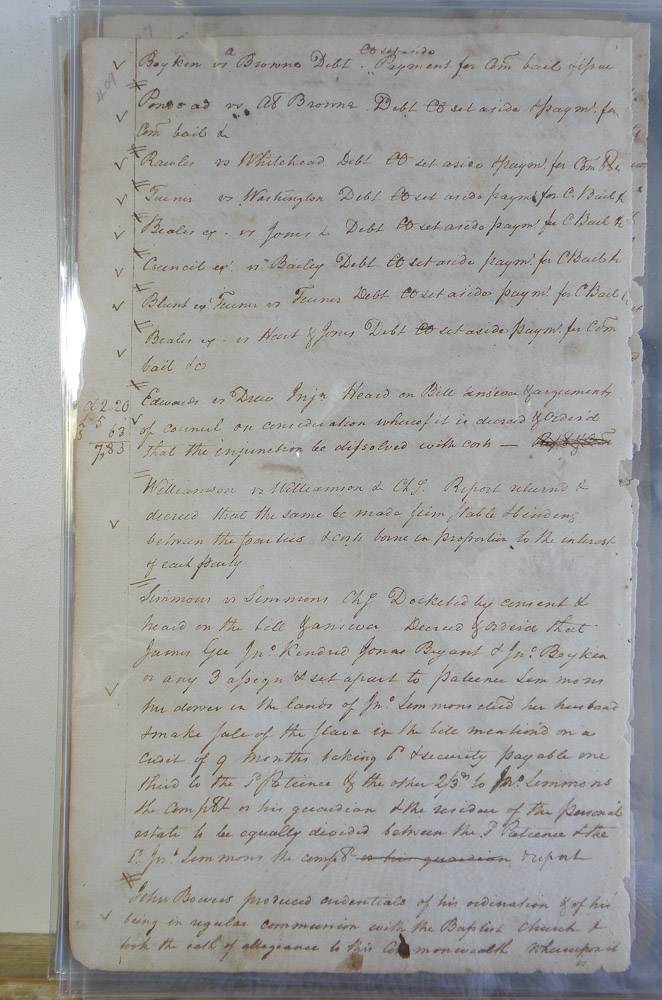 CO set aside
Boykin vs Browne Debt Payment for Com bail & issue
409
Pond & ad vs AB Browne Debt CO set aside & paymt. for
Com bail &
Rawles vs Whitehead Debt CO set aside & paym. for Com B &c
Turner vs Washington Debt CO set aside paymt for C. Bail &
Beales ex. vs Jones & Debt CO set aside paymt for C Bail &c
Council ex. vs Bailey Debt CO set aside paymt. for C Bail &
Blunt ex Turner vs Turner Debt CO set aside paymt. for C Bail &
Beales ex. vs Hart & Jones Debt CO set aside paymt. for Com
bail &c
Edwards vs Drew Injn Heard on Bill answer & arguments
2.20
of council on consideration whereof it is decreed & Orderd
5
63
that the injunction be dissolved with costs —
7.83
Williamson vs Williamson & Chy. Report returnd &
decreed that the same be made firm stable & binding
between the parties & costs borne in proportion to the interest
of each party
Simmons vs Simmons Chy Docketed by consent &
heard on the bill & answer Decreed & Orderd that
James Gee Jno. Kindred Jonas Bryant & Jno. Boykin
or any 3 assign & set apart to Patience Simmons
her dower in the lands of Jno. Simmons decd her husband
& make sale of the slave in the bill mention'd on a
credit of 9 months taking bd & security payable one
third to the sd Patience & the other 2/3ds to Jno. Simmons
the Complt or his guardian & the residue of the personal
estate to be equally divided between the sd Patience & the
sd Jno. Simmons the complt or his guardian & report
John Bowers produced credentials of his ordination & of his
being in regular communion with the Baptist church &
took the oath of allegiance to this Commonwealth whereupon it
is